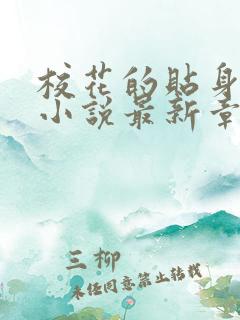 校花的貼身
小説最新章
三柳
未经同意禁止转载